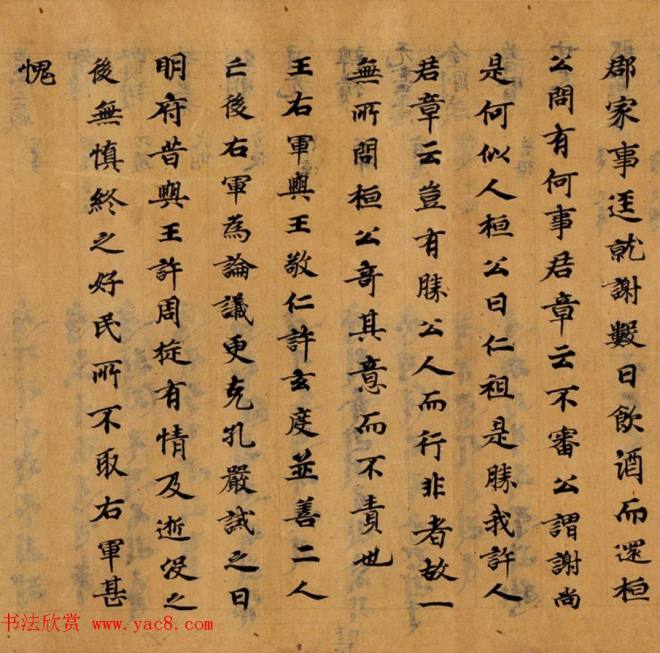 郡家事逕就謝數日飲酒而還桓
公問有何事君章云不審公謂謝尚
是何似人桓公曰仁祖是勝我許人
君章云豈有勝公人而行非者故一
無所問桓公奇其意而不責也
王右軍與王敬仁許玄度並善二人
亡後右軍為論議更克孔嚴誡之曰
明府昔與王許周旋有情及逝没之
後無慎終之好民所不取右軍甚
愧
书法欣赏 www.yac8.com